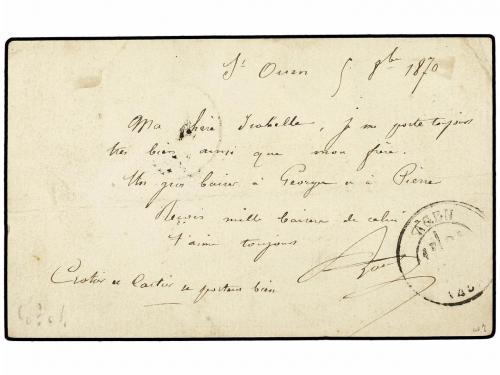 St Ouen 5 8bre 1870
Ma chère Isabelle, je me porte toujours
très bien ainsi que mon frère.
Un gros baiser à George et à Pierre
Reçois mille baisers de celui
t'aime toujours
Crotier et Cartier se portent bien
AGEN